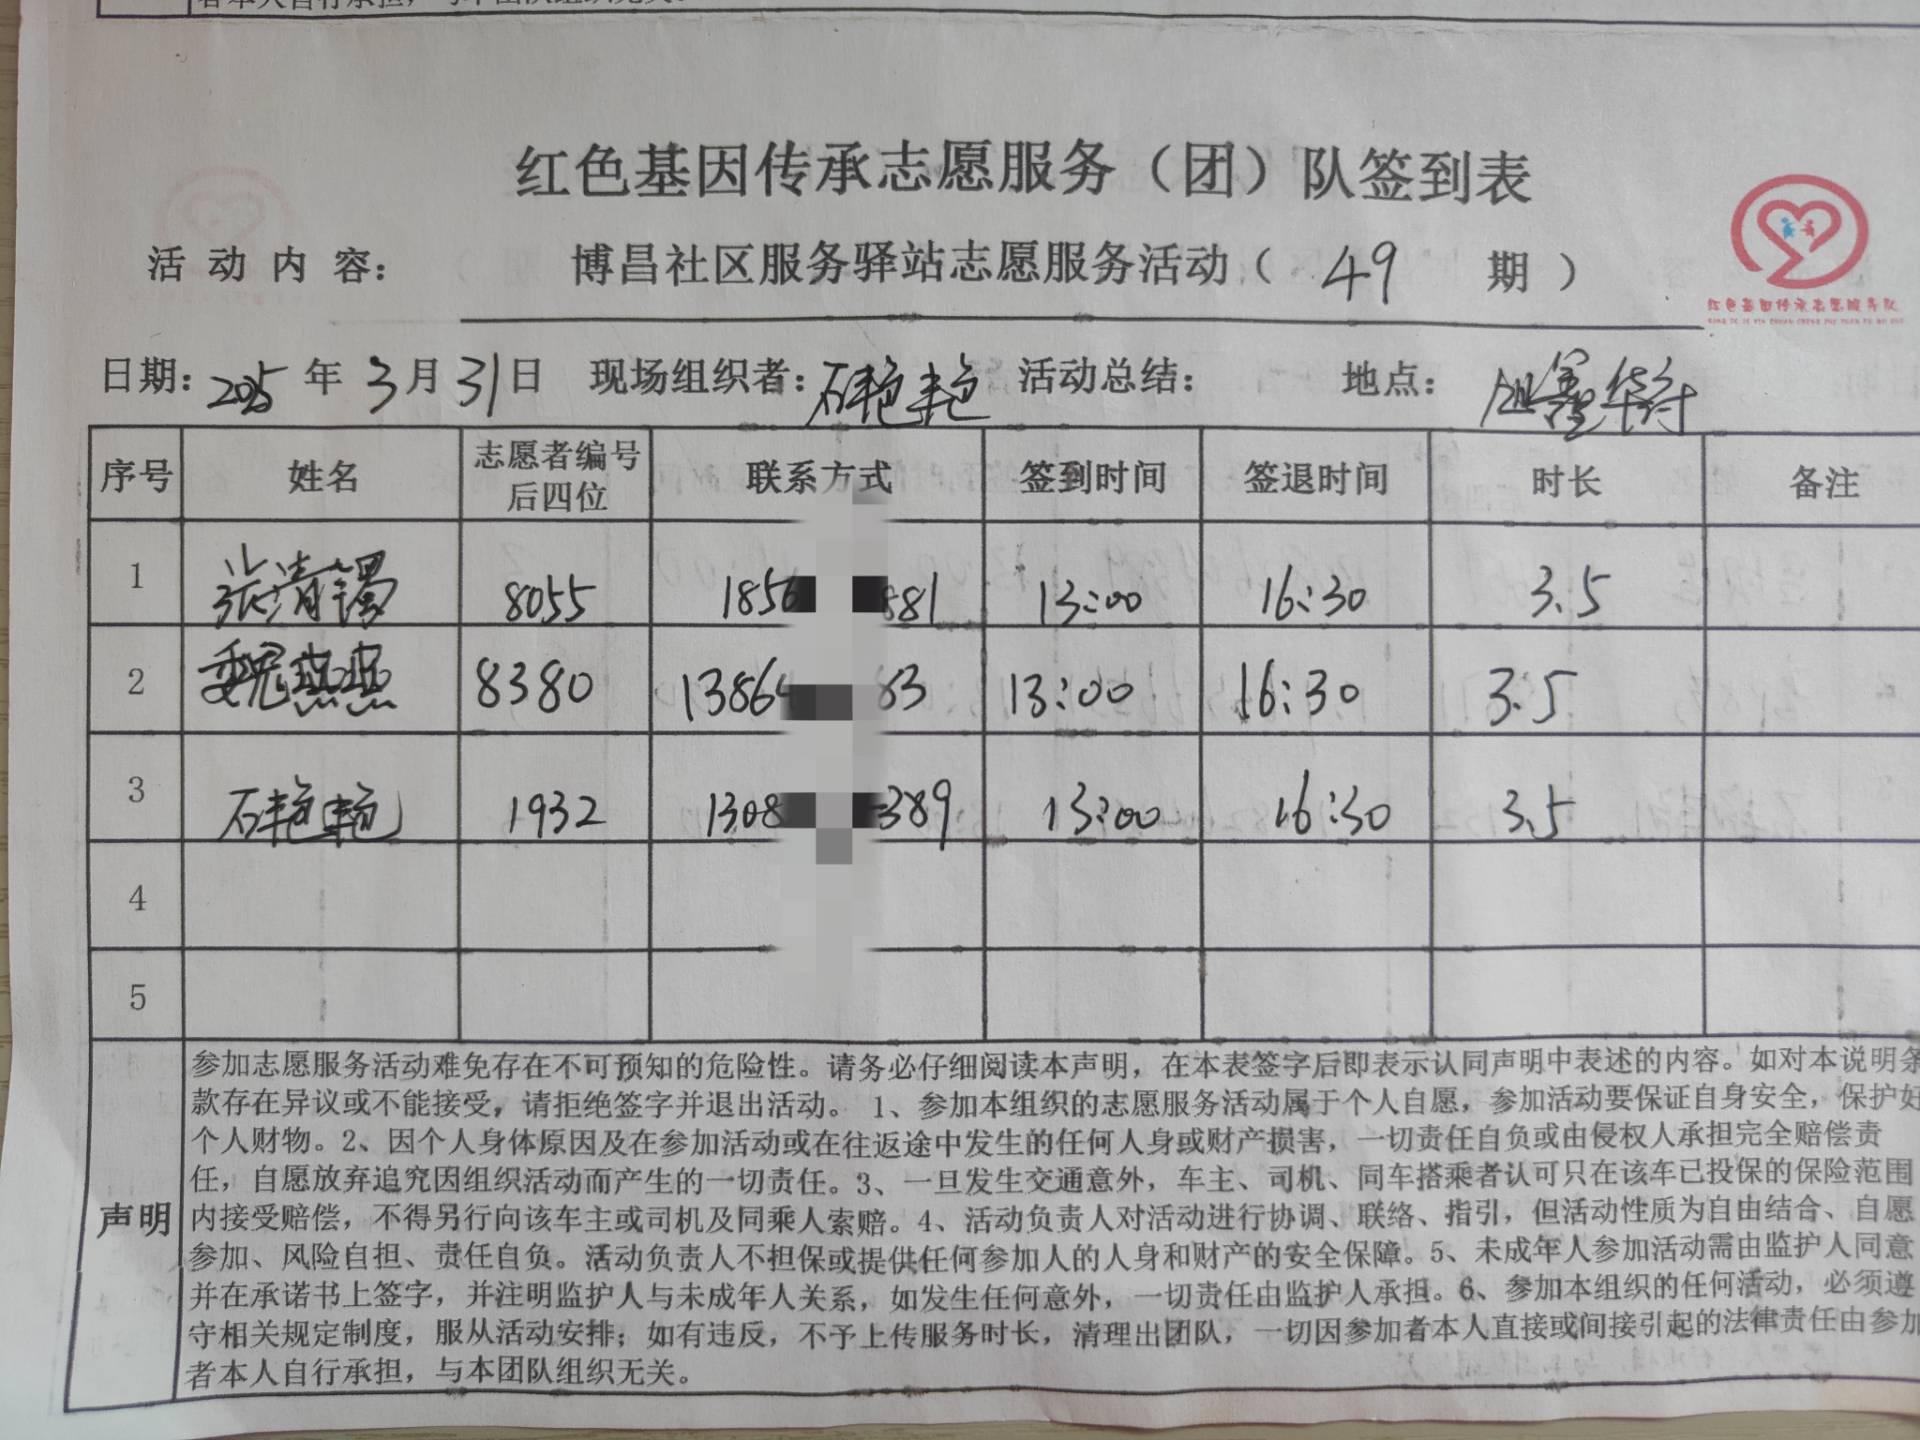 红色基因传承志愿服务（团）队签到表
活动内容： 博昌社区服务驿站志愿服务活动（ 49 期 ）
红色基因传承志愿服务队
日期：2025年3月31日 现场组织者：石艳艳 活动总结： 地点：
序号 姓名 志愿者编号后四位 联系方式 签到时间 签退时间 时长 备注
1 张清 8055 1856 881 13:00 16:30 3.5
2 魏燕燕 8380 1386 83 13:00 16:30 3.5
3 石艳艳 1932 1308 389 13:00 16:30 3.5
4
5
声明
参加志愿服务活动难免存在不可预知的危险性。请务必仔细阅读本声明，在本表签字后即表示认同声明中表述的内容。如对本说明条
款存在异议或不能接受，请拒绝签字并退出活动。 1、参加本组织的志愿服务活动属于个人自愿，参加活动要保证自身安全，保护好
个人财物。2、因个人身体原因及在参加活动或在往返途中发生的任何人身或财产损害，一切责任自负或由侵权人承担完全赔偿责
任，自愿放弃追究因组织活动而产生的一切责任。3、一旦发生交通意外，车主、司机、同车搭乘者认可只在该车已投保的保险范围
内接受赔偿，不得另行向该车主或司机及同乘人索赔。4、活动负责人对活动进行协调、联络、指引，但活动性质为自由结合、自愿
参加、风险自担、责任自负。活动负责人不担保或提供任何参加人的人身和财产的安全保障。5、未成年人参加活动需由监护人同意
并在承诺书上签字，并注明监护人与未成年人关系，如发生任何意外，一切责任由监护人承担。6、参加本组织的任何活动，必须遵
守相关规定制度，服从活动安排；如有违反，不予上传服务时长，清理出团队，一切因参加者本人直接或间接引起的法律责任由参加
者本人自行承担，与本团队组织无关。